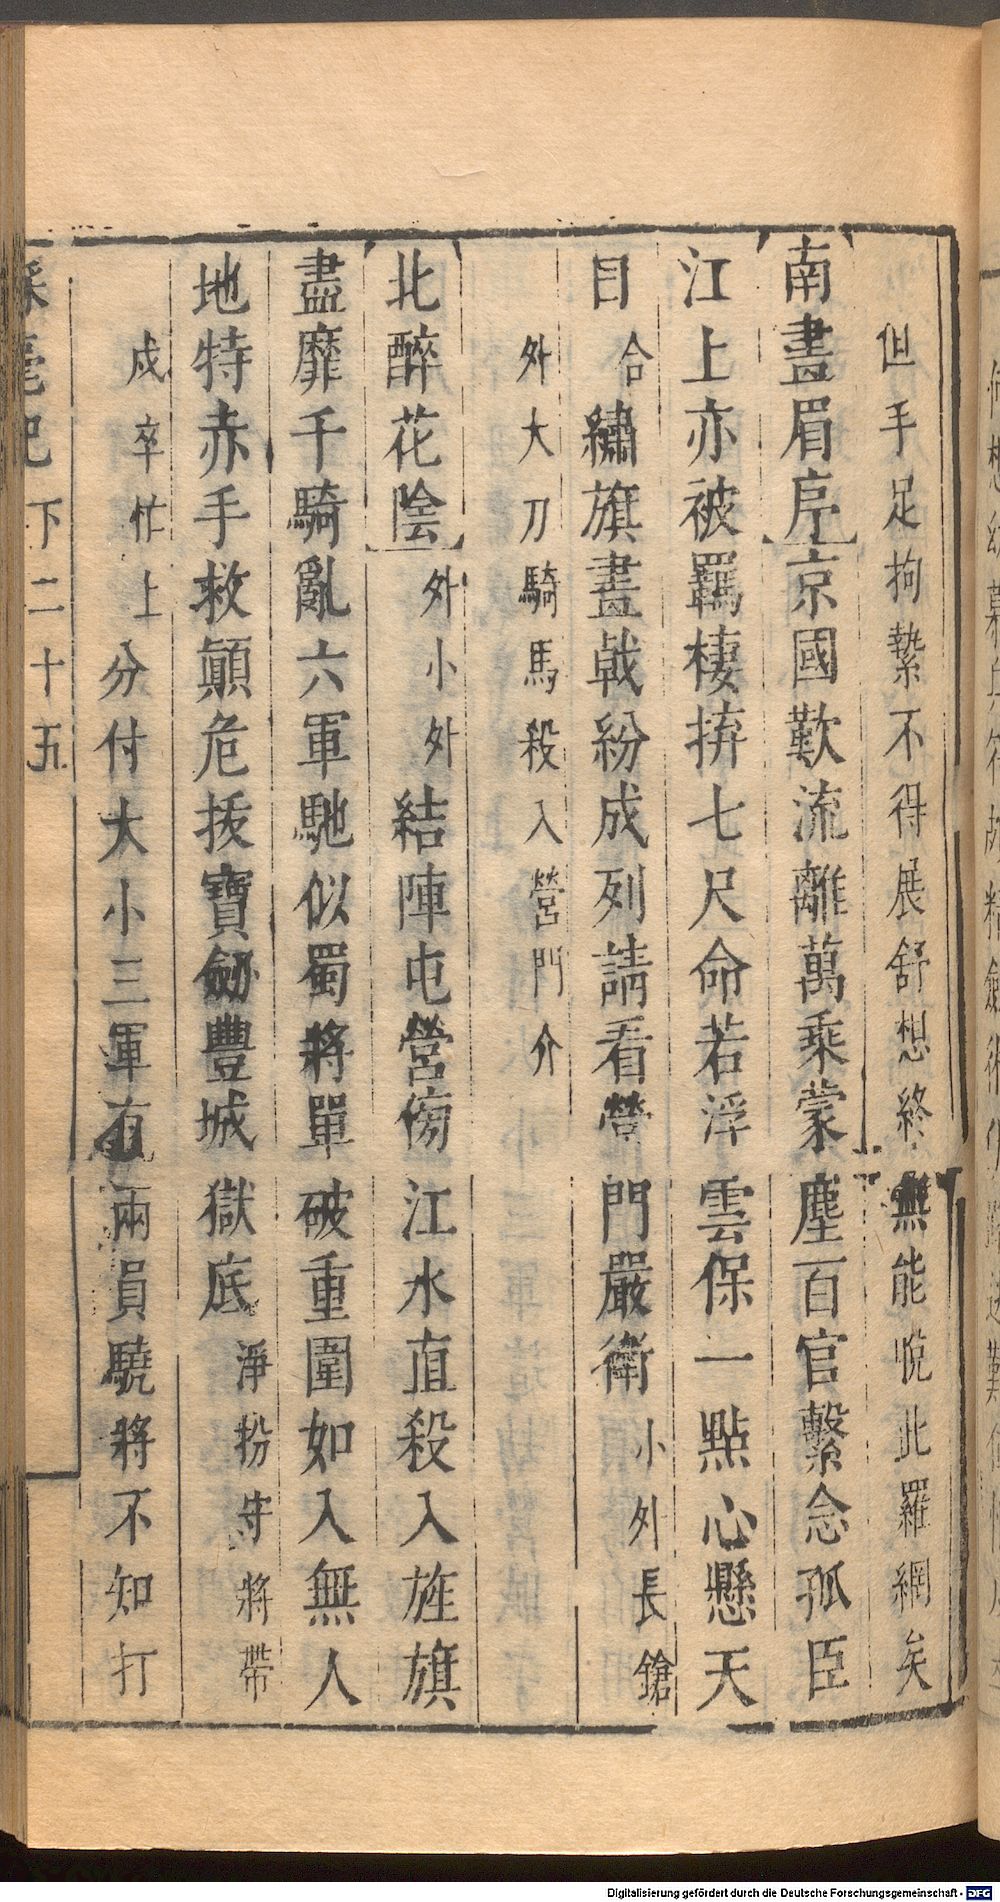 但手足拘縶不得展舒想終無能脫此羅網矣
南畫眉序京國歎流離萬乘蒙塵百官繫念孤臣
江上亦被羈棲拚七尺命若浮雲保一點心懸天
日合繡旗畫戟紛成列請看營門嚴衛小外長鎗
外大刀騎馬殺入營門介
北醉花陰外小外結陣屯營傍江水直殺入旌旗
盡靡千騎亂六軍馳似蜀將單破重圍如入無人
地特赤手救顛危拔寶劒豐城獄底淨扮守將帶
戍卒忙上分付大小三軍有兩員驍將不知打
下二十五
Digitalisierung gefördert durch die Deutsche Forschungsgemeinschaft - DFG